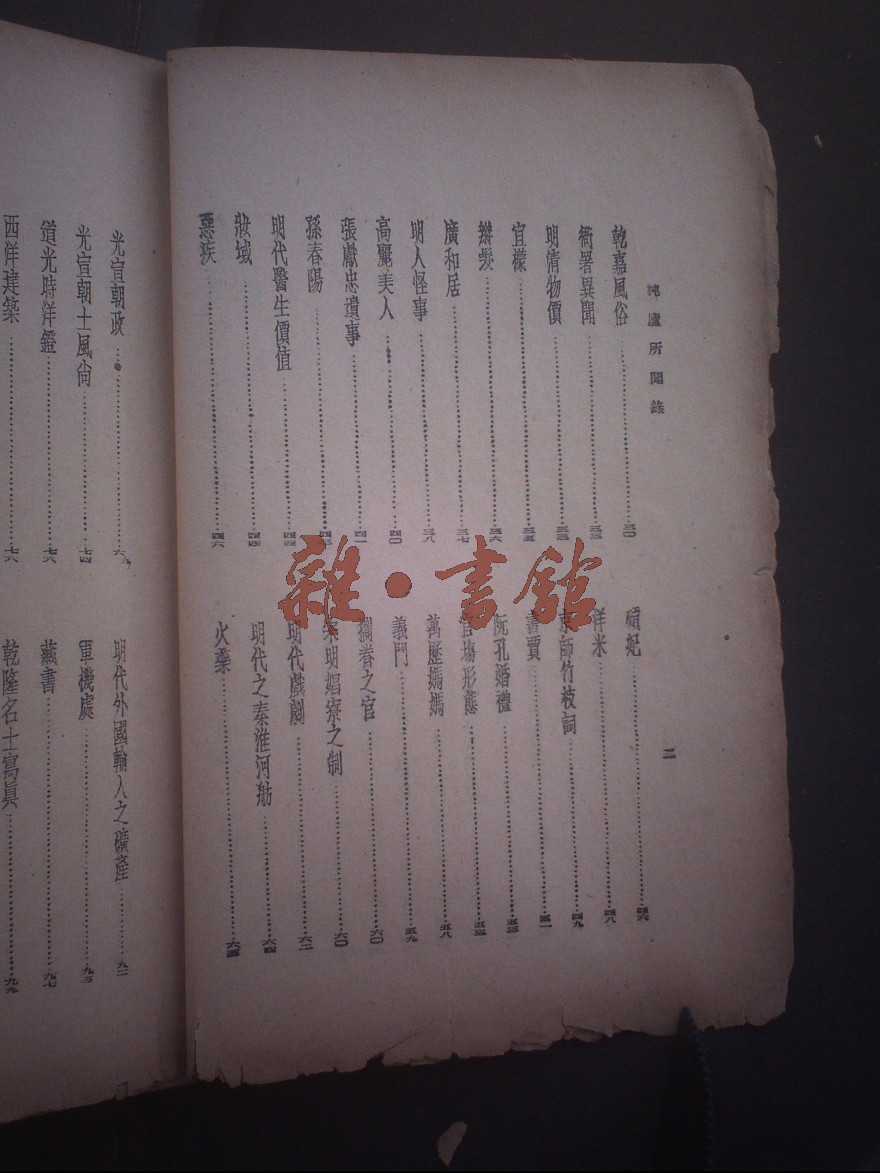 杶廬所聞錄
二
乾嘉風俗……三〇
衙署異聞……三三
明清物價……三三
宜檬……三五
辮髮……三六
廣和居……三七
明人怪事……三八
高麗美人……四〇
張獻忠遺事……四一
孫春陽……四三
明代醫生價值……四四
妝域……四四
惡疾……四六
碽妃……四六
洋米……四八
京師竹枝詞……四九
書賈……五一
阮孔婚禮……五三
官場形態……五三
萬歷媽媽……五八
義門……五九
攔眷之官……六〇
宋明娼寮之制……六〇
明代戲劇……六二
明代之秦淮河舫……六四
火藥……六五
雜·書館
光宣朝政……六九
光宣朝士風尚……七四
道光時洋鐙……七六
西洋建築……七八
明代外國輸入之礦產……九二
軍機處……九三
藏書……九七
乾隆名士寫眞……九九